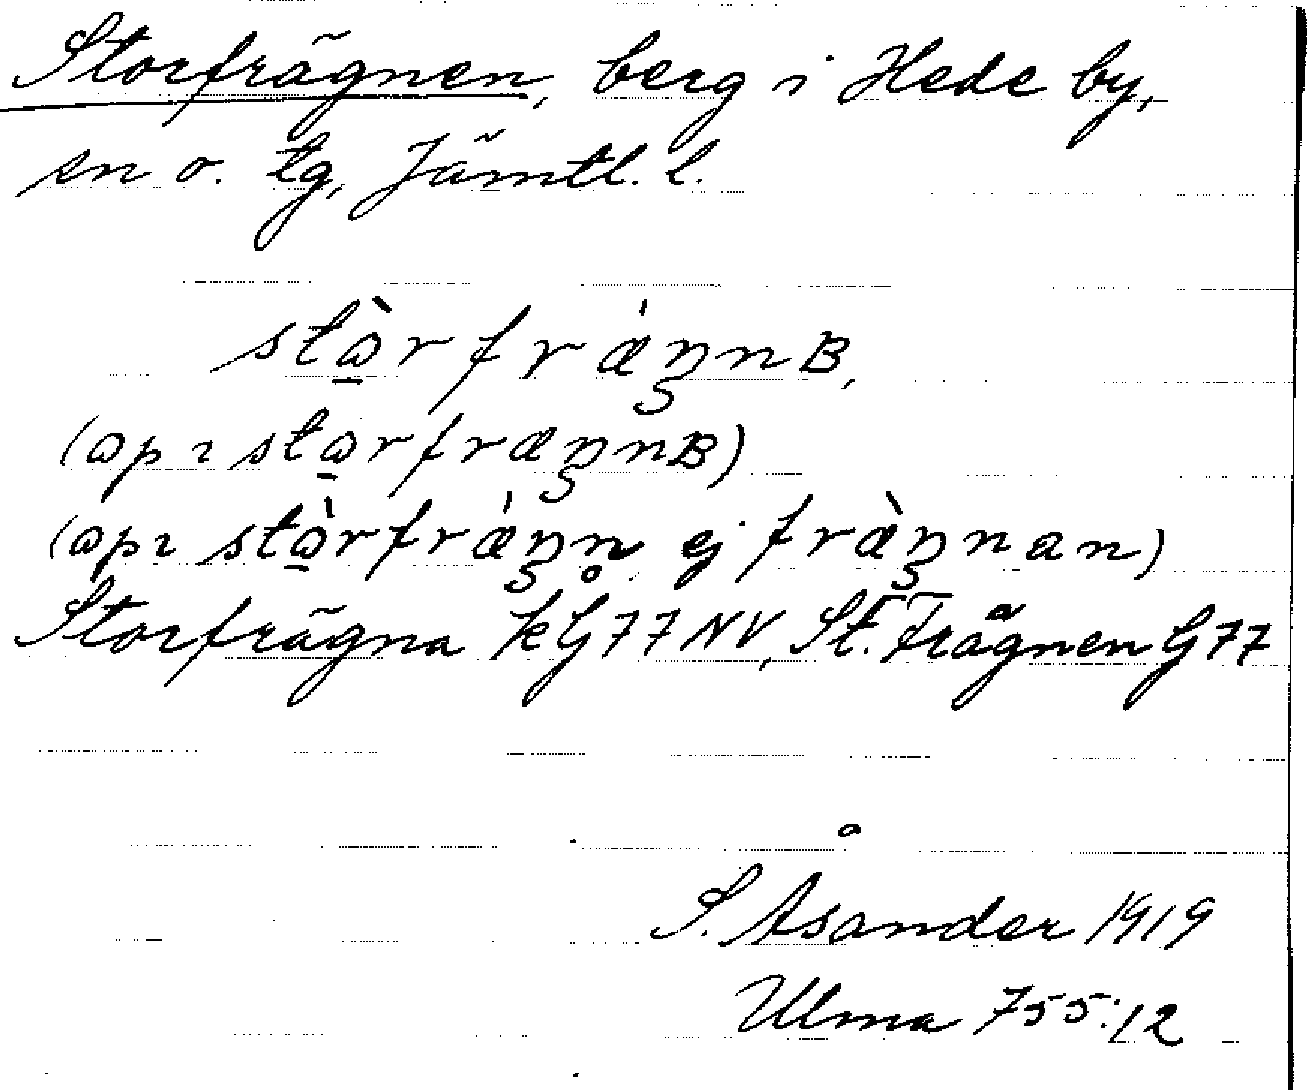 Storfrägnen, berg i Hede by,
sn o. tg, Jämtl. l.
stɷ̀rfrǽŋnB,
(ɷpı stɷrfræŋnB)
(ɷpı stɷ̀rfrǽŋn̥ ej fræ̀ŋnan)
Storfrägna kG77NV, St. Frågnen G77
S. Åsander 1919
Ulma 755:12